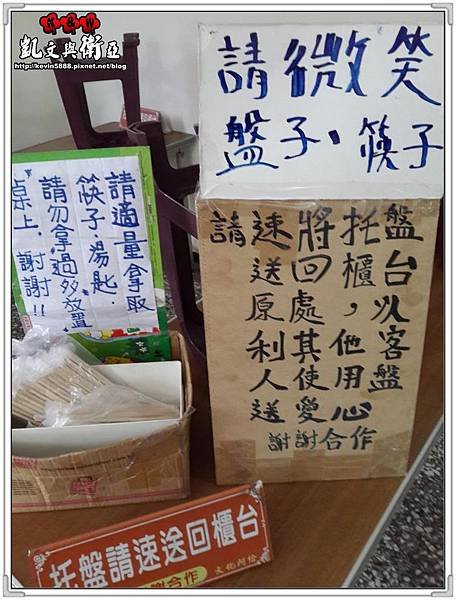 凱文與衛亞
http://kevin5888.pixnet.net/blog
請微笑
盤子、筷子
請速將托盤
送回櫃台
原處，以
利其他客
人使用盤
送愛心
謝謝合作
請適量拿取
筷子、湯匙.
請勿拿過多放置
桌上. 謝謝!!
托盤請速送回櫃台
謝合作